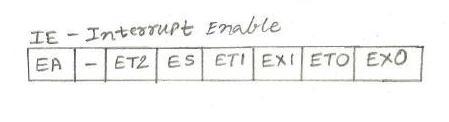 IE - Interrupt Enable
EA - ET2 ES ET1 EX1 ET0 EX0